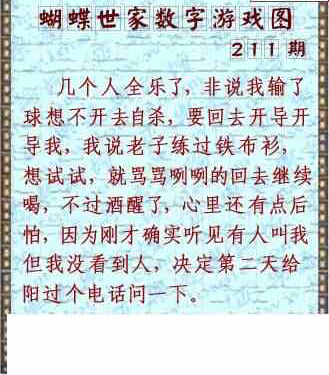 蝴蝶世家数字游戏图
211期
几个人全乐了，非说我输了
球想不开去自杀，要回去开导开
导我，我说老子练过铁布衫，
想试试，就骂骂咧咧的回去继续
喝，不过酒醒了，心里还有点后
怕，因为刚才确实听见有人叫我
但我没看到人，决定第二天给
阳过个电话问一下。